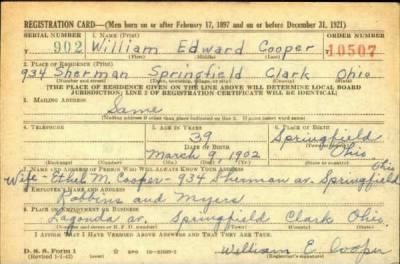 REGISTRATION CARD—(Men born on or after February 17, 1897 and on or before December 31, 1921)
SERIAL NUMBER 1. NAME (Print) ORDER NUMBER
T 902 William Edward Cooper 10507
(First) (Middle) (Last)
2. PLACE OF RESIDENCE (Print)
934 Sherman Springfield Clark Ohio
(Number and street) (Town, township, village, or city) (County) (State)
[THE PLACE OF RESIDENCE GIVEN ON THE LINE ABOVE WILL DETERMINE LOCAL BOARD
JURISDICTION; LINE 2 OF REGISTRATION CERTIFICATE WILL BE IDENTICAL]
3. MAILING ADDRESS
Same
[Mailing address if other than place indicated on line 2. If same insert word same]
4. TELEPHONE 5. AGE IN YEARS 6. PLACE OF BIRTH
39 Springfield
DATE OF BIRTH (Town or county)
March 1902 Ohio
(Exchange) (Number) (Mo.) (Day) (Yr.) (State or country)
7. NAME AND ADDRESS OF PERSON WHO WILL ALWAYS KNOW YOUR ADDRESS Ohio
Wife - Ethel M. Cooper - 934 Sherman av. Springfield
8. EMPLOYER'S NAME AND ADDRESS
Robbins and Myers
9. PLACE OF EMPLOYMENT OR BUSINESS
Lagonda av. Springfield Clark Ohio
(Number and street or R. F. D. number) (Town) (County) (State)
I AFFIRM THAT I HAVE VERIFIED ABOVE ANSWERS AND THAT THEY ARE TRUE.
D. S. S. Form 1 GPO William E Cooper
(Revised 1-1-42) (over) (Registrant's signature)